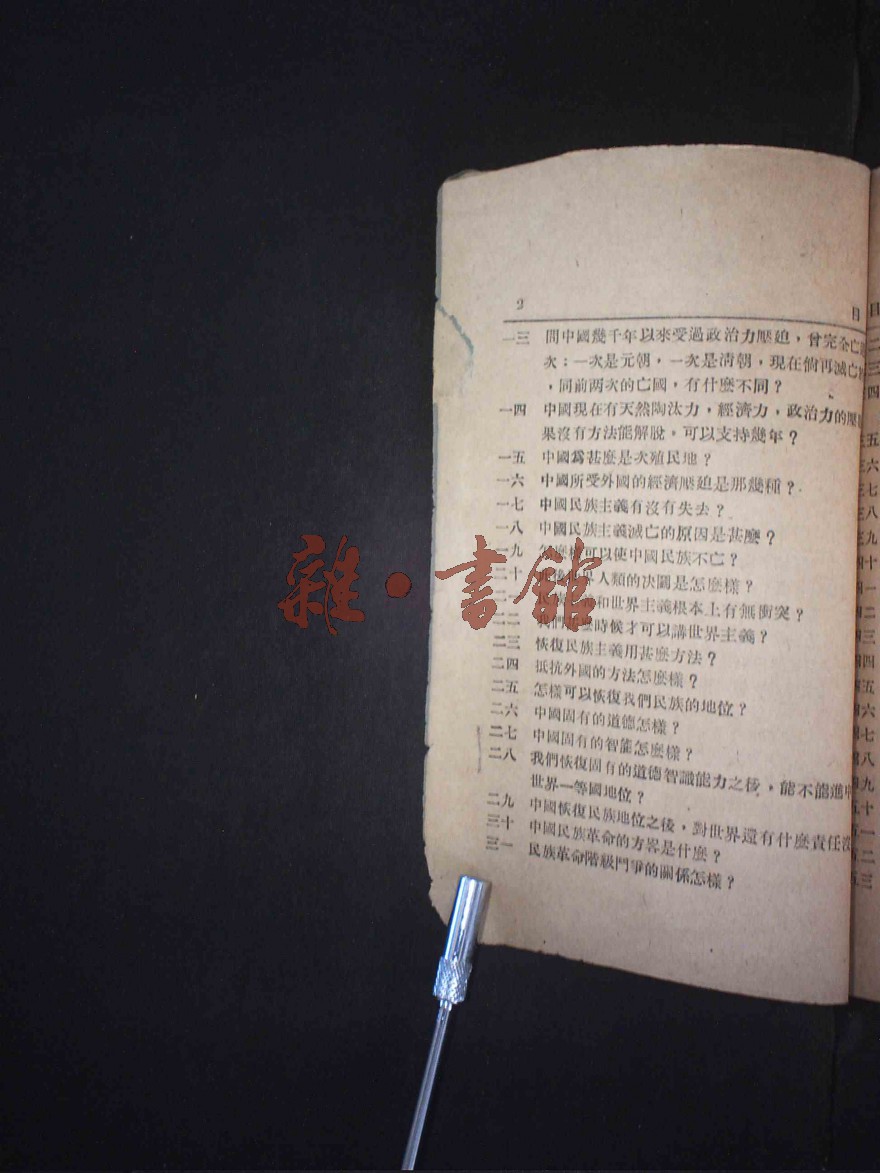 2 目
一三 問中國幾千年以來受過政治力壓迫，曾完全亡
次：一次是元朝，一次是清朝，現在倘再滅亡
，同前两次的亡國，有什麼不同？
一四 中國現在有天然陶汰力，經濟力，政治力的壓
果沒有方法能解脫，可以支持幾年？
一五 中國爲甚麼是次殖民地？
一六 中國所受外國的經濟壓迫是那幾種？
一七 中國民族主義有沒有失去？
一八 中國民族主義滅亡的原因是甚麼？
一九 怎麼樣可以使中國民族不亡？
二十 界人類的决鬭是怎麼樣？
和世界主義根本上有無衝突？
我們 時候才可以講世界主義？
二三 恢復民族主義用甚麼方法？
二四 抵抗外國的方法怎麼樣？
二五 怎樣可以恢復我們民族的地位？
二六 中國固有的道德怎樣？
二七 中國固有的智能怎麼樣？
二八 我們恢復固有的道德智識能力之後，能不能進
世界一等國地位？
二九 中國恢復民族地位之後，對世界還有什麼責任
三十 中國民族革命的方畧是什麼？
三一 民族革命階級鬥爭的關係怎樣？
雜·書館